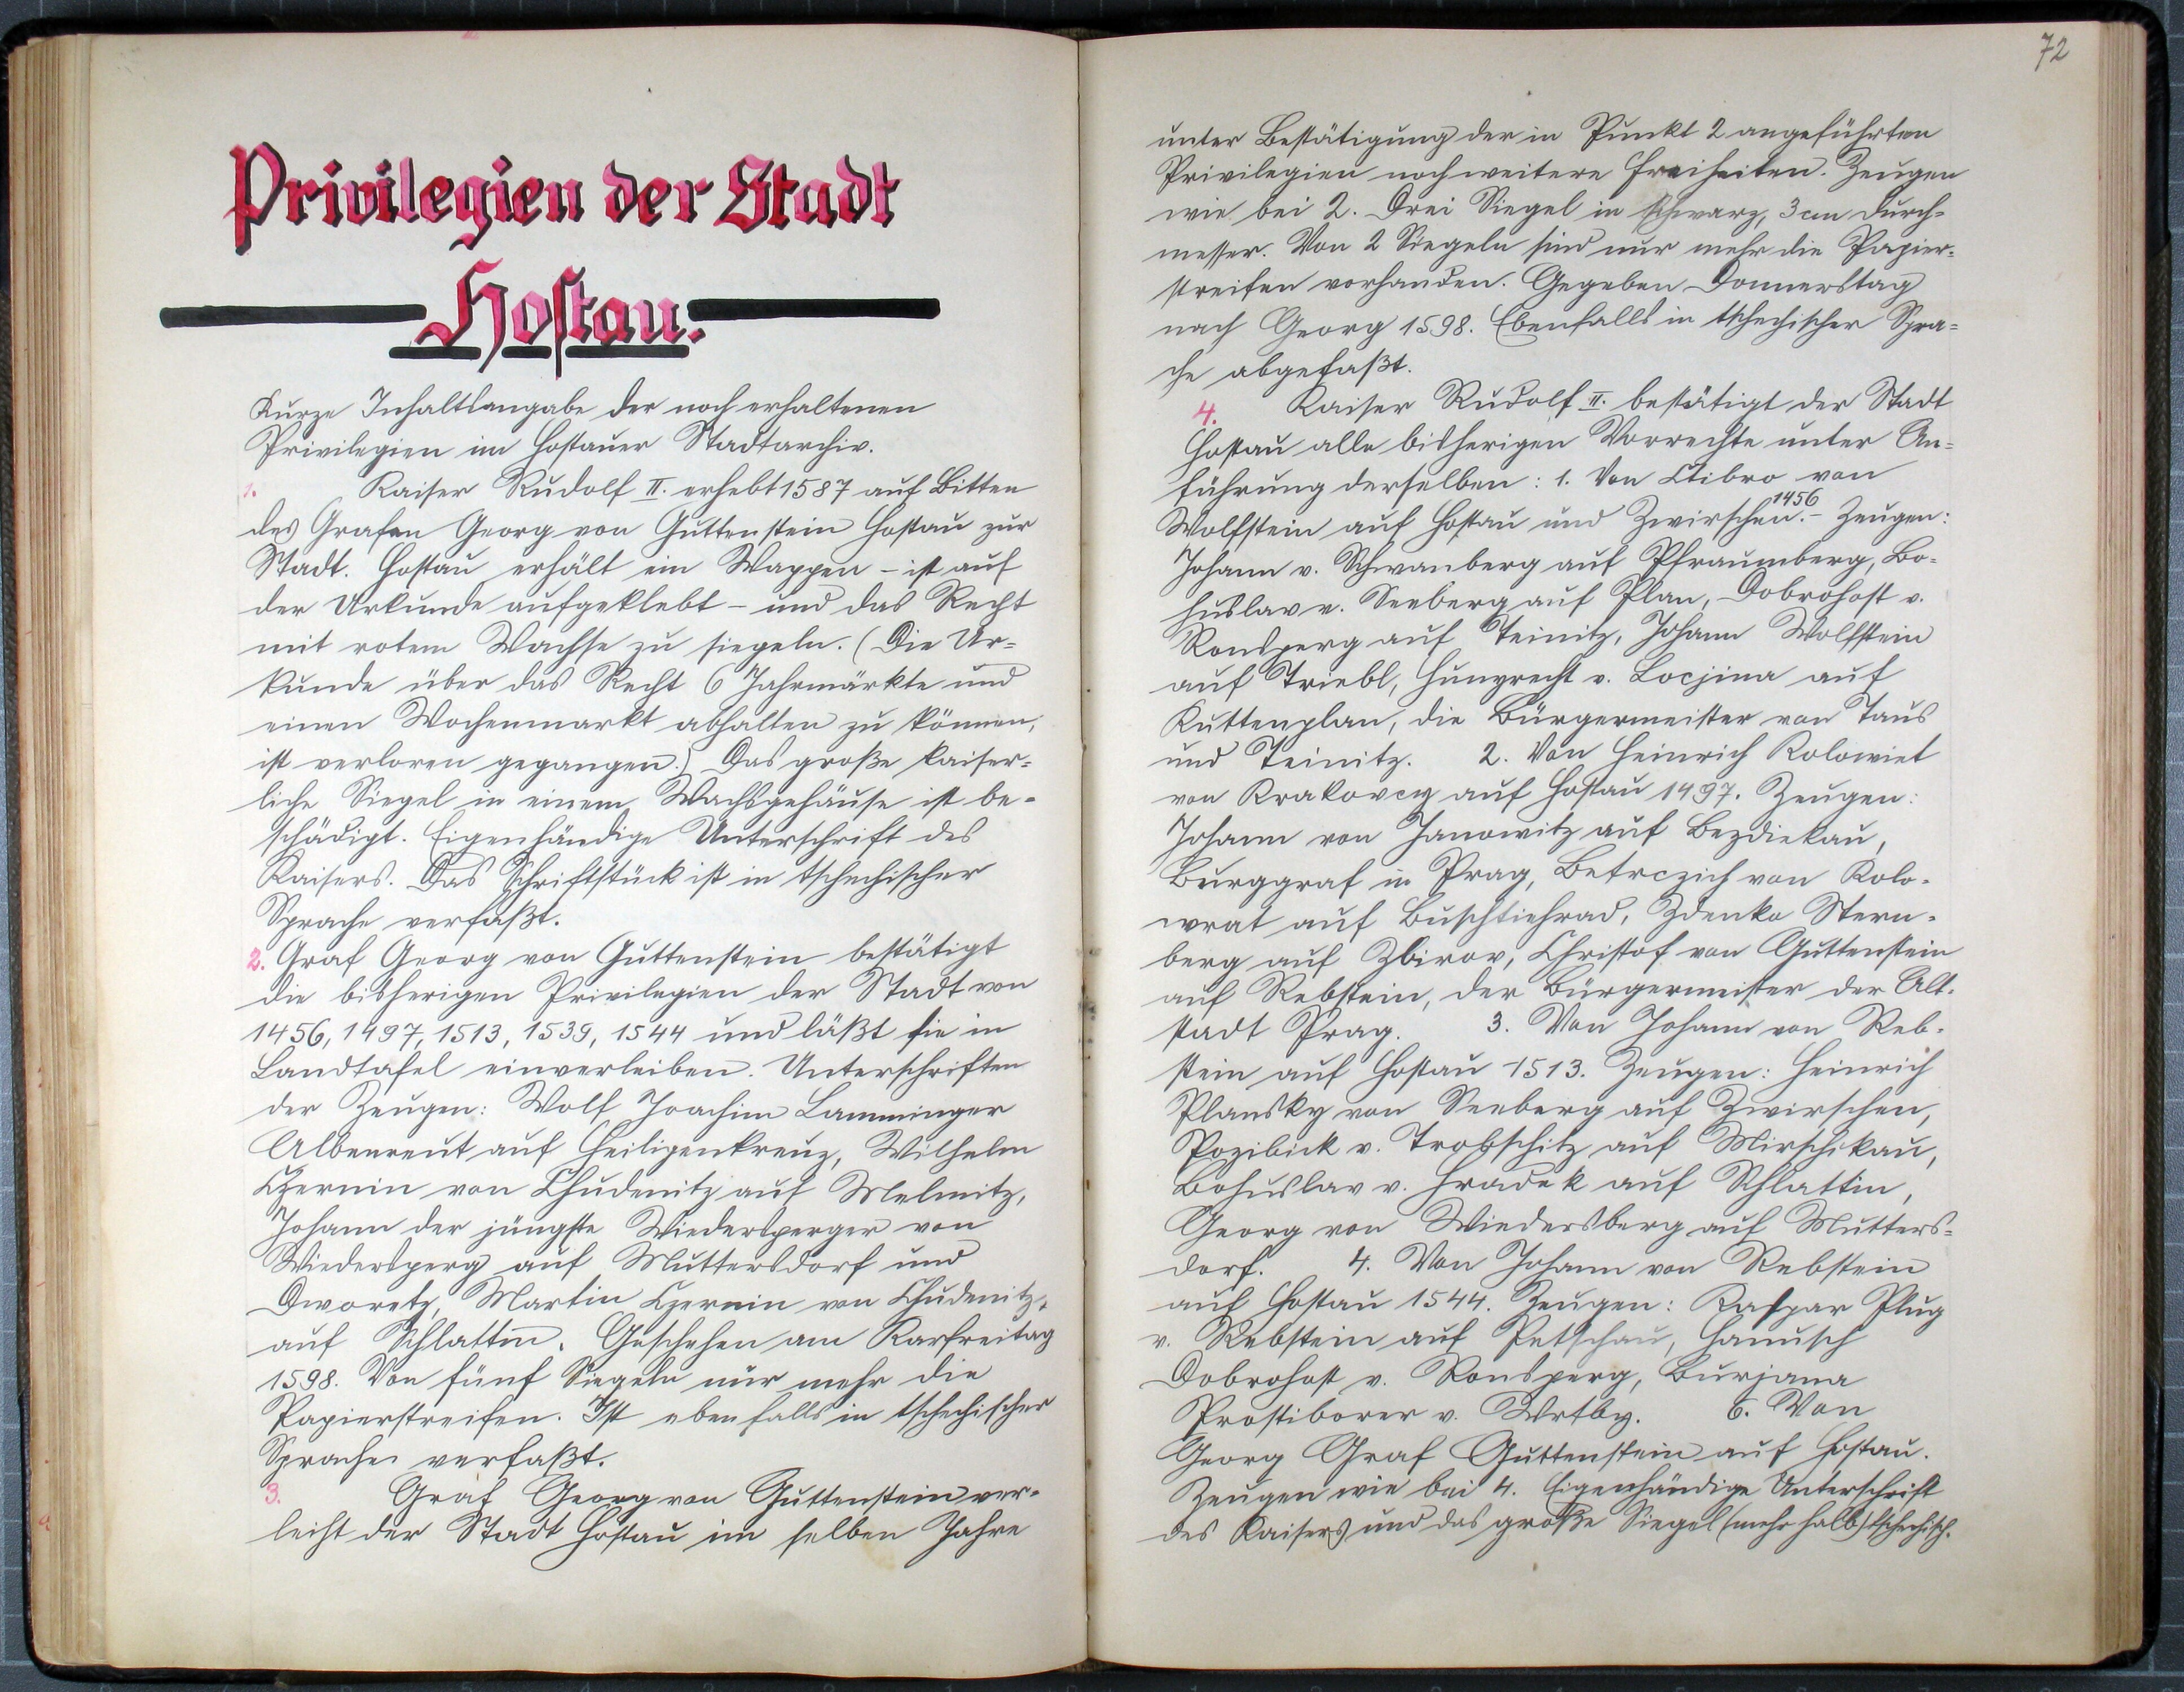 Privilegien der Stadt
Hostau.
Kurze Inhaltsangabe der noch erhaltenen
Privilegien im Hostauer Stadtarchiv.
1. Kaiser Rudolf II. erhebt 1587 auf Bitten
des Grafen Georg von Guttenstein Hostau zur
Stadt. Hostau erhält ein Wappen – ist auf
der Urkunde aufgeklebt – und das Recht
mit rotem Wachse zu siegeln. (Die Ur=
kunde über das Recht 6 Jahrmärkte und
einen Wochenmarkt abhalten zu können,
ist verloren gegangen.) Das große kaiser=
liche Siegel in einem Wachsgehäuse ist be=
schädigt. Eigenhändige Unterschrift des
Kaisers. Das Schriftstück ist in tschechischer
Sprache verfaßt.
2. Graf Georg von Guttenstein bestätigt
die bisherigen Privilegien der Stadt von
1456, 1497, 1513, 1539, 1544 und läßt sie in
Landtafel einverleiben. Unterschriften
der Zeugen: Wolf Joachim Lamminger
Albenreut auf Heiligenkreuz, Wilhelm
Czernin von Chudenitz auf Melmitz,
Johann der jüngste Wiedersperger von
Wiedersperg auf Muttersdorf und
Dworetz, Martin Czernin von Chudenitz
auf Schlattin. Geschehen am Karfreitag
1598. Von fünf Siegeln nur mehr die
Papierstreifen. Ist ebenfalls in tschechischer
Sprache verfaßt.
3. Graf Georg von Guttenstein ver=
leiht der Stadt Hostau im selben Jahre
72
unter Bestätigung der in Punkt 2 angeführten
Privilegien noch weitere Freiheiten. Zeugen
wie bei 2. Drei Siegel in schwarz, 3 cm Durch=
messer. Von 2 Siegeln sind nur mehr die Papier=
streifen vorhanden. Gegeben Donnerstag
nach Georg 1598. Ebenfalls in tschechischer Spra=
che abgefaßt.
4. Kaiser Rudolf II. bestätigt der Stadt
Hostau alle bisherigen Vorrechte unter An=
führung derselben: 1. Von Ctibro von
Wolfstein auf Hostau und Zwirschen. 1456 – Zeugen:
Johann v. Schwanberg auf Pfraumberg, Bo=
huslav v. Seeberg auf Plan, Dobrohost v.
Ronsperg auf Teinitz, Johann Wolfstein
auf Triebl, Hungrecht v. Locjina auf
Kuttenplan, die Bürgermeister von Taus
und Teinitz. 2. Von Heinrich Kolowiet
von Krakovcy auf Hostau 1497. Zeugen:
Johann von Janowitz auf Bezdiekau,
Burggraf in Prag, Betrczich von Kolo=
wrat auf Buschtiehrad, Zdenko Stern=
berg auf Zbirov, Christof von Guttenstein
auf Rebstein, der Bürgermeister der Alt=
stadt Prag. 3. Von Johann von Reb=
stein auf Hostau 1513. Zeugen: Heinrich
Plansky von Seeberg auf Zwirschen,
Pozibick v. Trobschitz auf Mirschikau,
Bohuslav v. Hradek auf Schlattin,
Georg von Wiedersberg auf Mutters=
dorf. 4. Von Johann von Rebstein
auf Hostau 1544. Zeugen: Kaspar Plug
v. Rebstein auf Petschau, Hanusch
Dobrohost v. Ronsperg, Burjana
Prostiborer v. Wrtby. 6. Von
Georg Graf Guttenstein auf Hostau.
Zeugen wie bei 4. Eigenhändige Unterschrift
des Kaisers und das große Siegel (mehr halb) tschechisch.